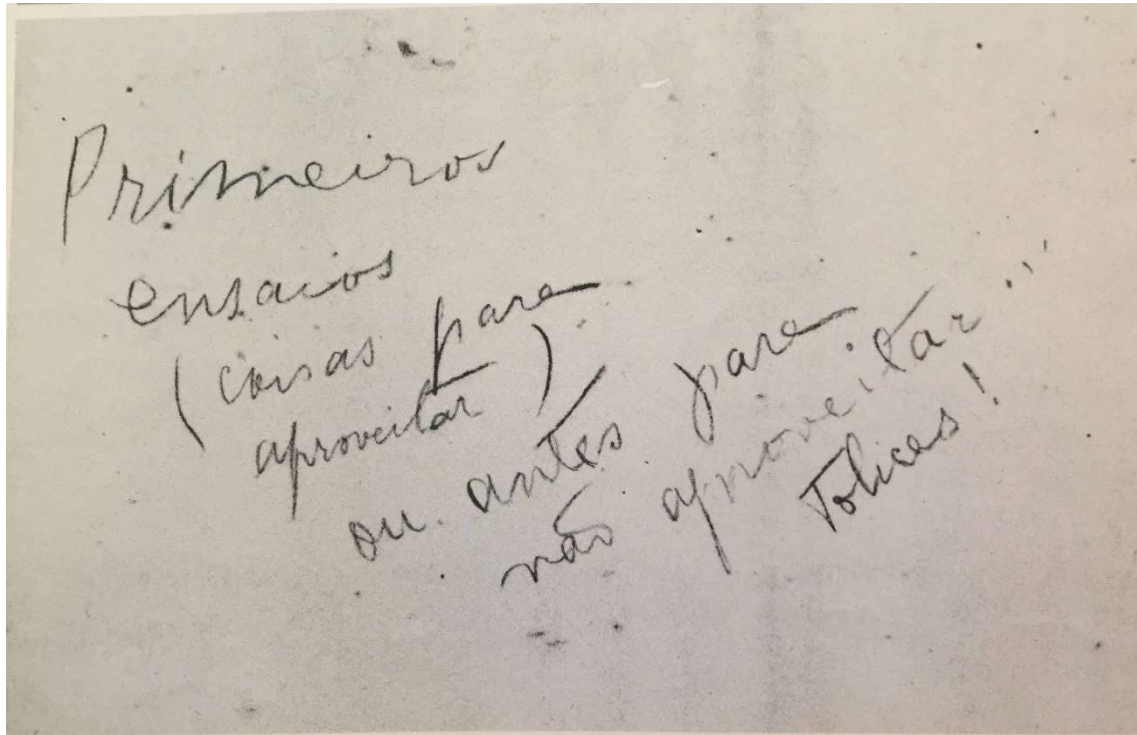 Primeiros
ensaios
(coisas para
aproveitar)
ou antes para
não aproveitar...
Tolices!